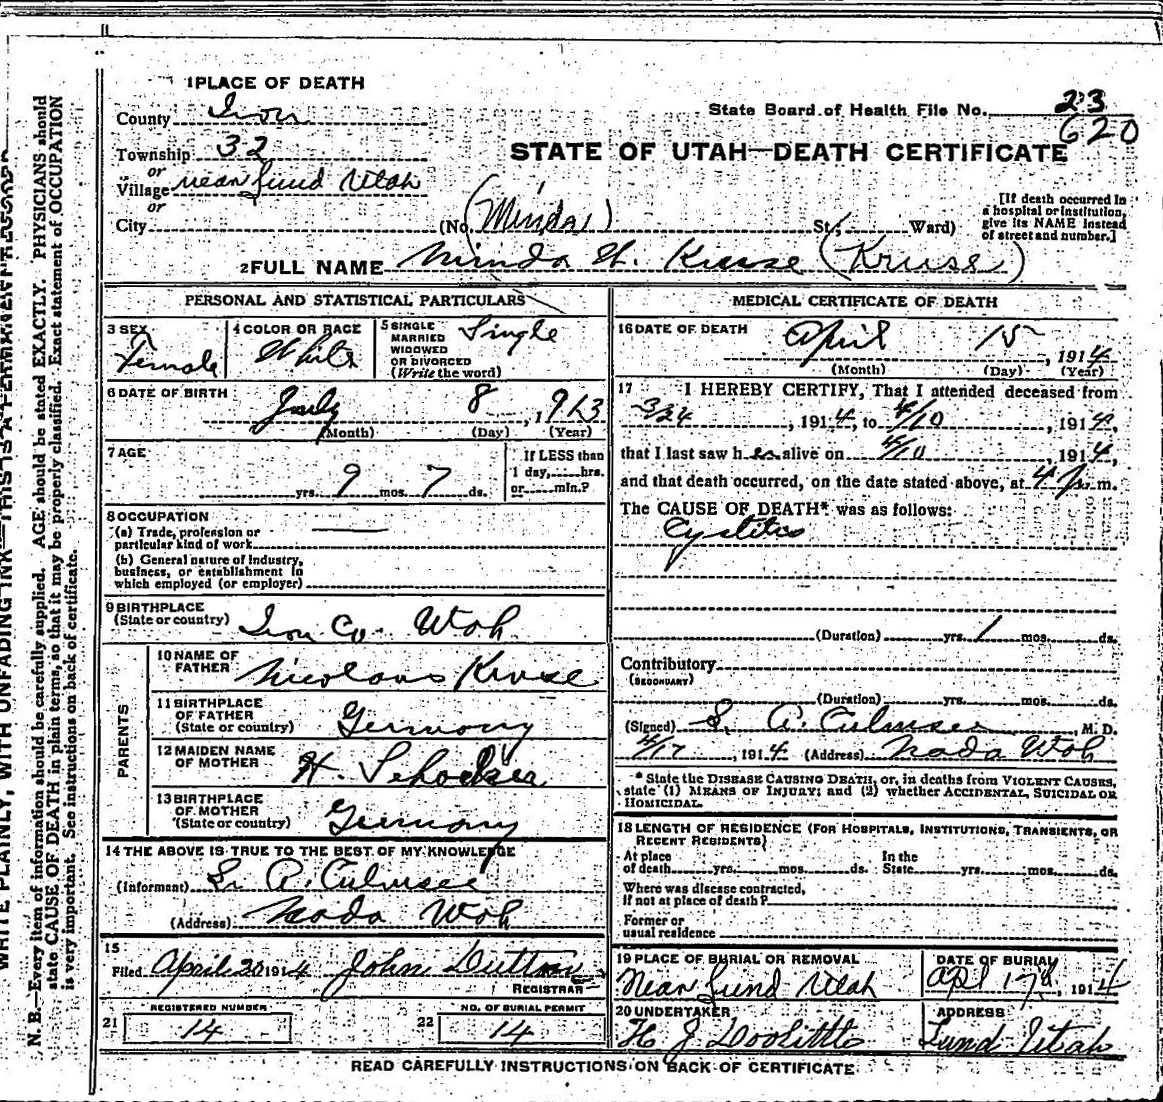 1 PLACE OF DEATH
County Iron
State Board of Health File No. 23
620
Township 32
or
Village near Lund Utah
or
City (No. (Minda) St.; Ward)
STATE OF UTAH—DEATH CERTIFICATE
[If death occurred in
a hospital or institution,
give its NAME instead
of street and number.]
2 FULL NAME Minda H. Kruse (Kruse)
PERSONAL AND STATISTICAL PARTICULARS
3 SEX Female
4 COLOR OR RACE White
5 SINGLE
MARRIED
WIDOWED
OR DIVORCED
(Write the word) Single
6 DATE OF BIRTH
July 8, 1913
(Month) (Day) (Year)
7 AGE
yrs. 9 mos. 7 ds.
If LESS than
1 day, hrs.
or min.?
8 OCCUPATION
(a) Trade, profession or
particular kind of work
(b) General nature of industry,
business, or establishment in
which employed (or employer)
9 BIRTHPLACE
(State or country) Iron Co. Utah
PARENTS
10 NAME OF
FATHER Nicolaus Kruse
11 BIRTHPLACE
OF FATHER
(State or country) Germany
12 MAIDEN NAME
OF MOTHER H.
13 BIRTHPLACE
OF MOTHER
(State or country) Germany
14 THE ABOVE IS TRUE TO THE BEST OF MY KNOWLEDGE
(Informant) S. A. Culmsee
(Address) Nada Utah
15
Filed April 20 1914 John Dutton
REGISTRAR
REGISTERED NUMBER
21 14
NO. OF BURIAL PERMIT
22 14
MEDICAL CERTIFICATE OF DEATH
16 DATE OF DEATH
April 15, 1914
(Month) (Day) (Year)
17 I HEREBY CERTIFY, That I attended deceased from
3/24, 1914, to 4/10, 1914,
that I last saw her alive on 4/10, 1914,
and that death occurred, on the date stated above, at 4 p.m.
The CAUSE OF DEATH* was as follows:
Cystitis
(Duration) yrs. 1 mos. ds.
Contributory
(SECONDARY)
(Duration) yrs. mos. ds.
(Signed) S. A. Culmsee, M. D.
4/17, 1914 (Address) Nada Utah
* State the DISEASE CAUSING DEATH, or, in deaths from VIOLENT CAUSES,
state (1) MEANS OF INJURY; and (2) whether ACCIDENTAL, SUICIDAL OR
HOMICIDAL.
18 LENGTH OF RESIDENCE (FOR HOSPITALS, INSTITUTIONS, TRANSIENTS, OR
RECENT RESIDENTS)
At place
of death yrs. mos. ds. In the
State yrs. mos. ds.
Where was disease contracted,
if not at place of death?
Former or
usual residence
19 PLACE OF BURIAL OR REMOVAL
Near Lund Utah
DATE OF BURIAL
Apl 17th, 1914
20 UNDERTAKER
H J Doolittle
ADDRESS
Lund Utah
READ CAREFULLY INSTRUCTIONS ON BACK OF CERTIFICATE
WRITE PLAINLY, WITH UNFADING INK—THIS IS A PERMANENT RECORD
N. B.—Every item of information should be carefully supplied. AGE should be stated EXACTLY. PHYSICIANS should
state CAUSE OF DEATH in plain terms, so that it may be properly classified. Exact statement of OCCUPATION
is very important. See instructions on back of certificate.